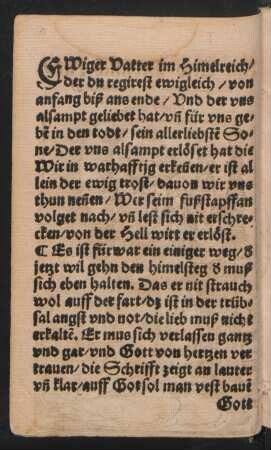 EWiger Vatter im Himelreich/
der du regirest ewigleich / von
anfang biß ans ende / Vnd der vns
alsampt geliebet hat/vñ für vns ge-
bẽ in den todt/ sein allerliebstẽ So-
ne/Der vns alsampt erlöset hat die
Wir in warhafftjg erkeñen/er ist al
lein der ewig trost/dauon wir vns
thun neñen/ Wer seim fußstapffan
volget nach/ vñ lest sich nit erschre-
cken/von der Hell wirt er erlöst.
C Es ist fürwar ein einiger weg/ď
jetzt wil gehn den himelsteg ď muß
sich eben halten. Das er nit strauch
wol auff der fart/dz ist in der trübs
sal angst vnd not/die lieb muß nicht
erkaltẽ. Er mus sich verlassen gantz
vnd gar/vnd Gott von hertzen ver
trauen/ die Schrifft zeigt an lauter
vñ klar/auff Got sol man vest bauẽ
Gott